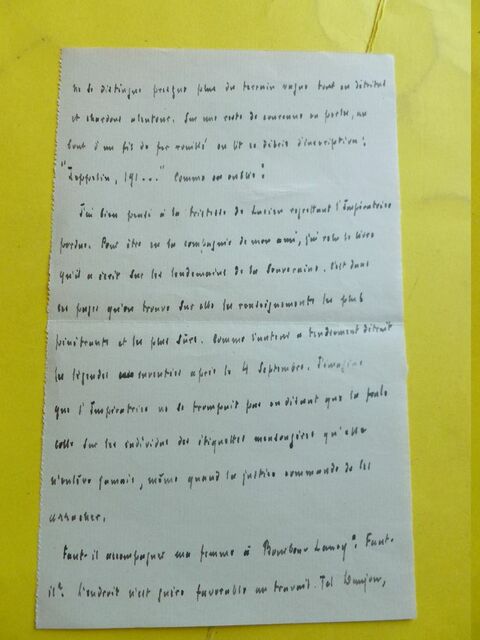 ne se distingue presque plus du terrain vague tout en détritus
et chardons alentour. Sur une sorte de couronne en perles, au
bout d'un fil de fer rouillé on lit ce débris d'inscription :
"Zeppelin, 191..." Comme on oublie !
J'ai bien pensé à la tristesse de Lucien regrettant l'Impératrice
perdue. Pour être en la compagnie de mon ami, j'ai relu le livre
qu'il a écrit sur les lendemains de la Souveraine. C'est dans
ces pages qu'on trouve sur elle les renseignements les plus
pénétrants et les plus sûrs. Comme l'auteur a tendrement détruit
les légendes inventées après le 4 Septembre. J'imagine
que l'Impératrice ne se trompait pas en disant que la foule
colle sur les individus des étiquettes mensongères qu'elle
n'enlève jamais, même quand la justice commande de les
arracher.
Faut-il accompagner ma femme à Bourbon Lancy ? Faut-
il ? L'endroit n'est guère favorable au travail. Tel